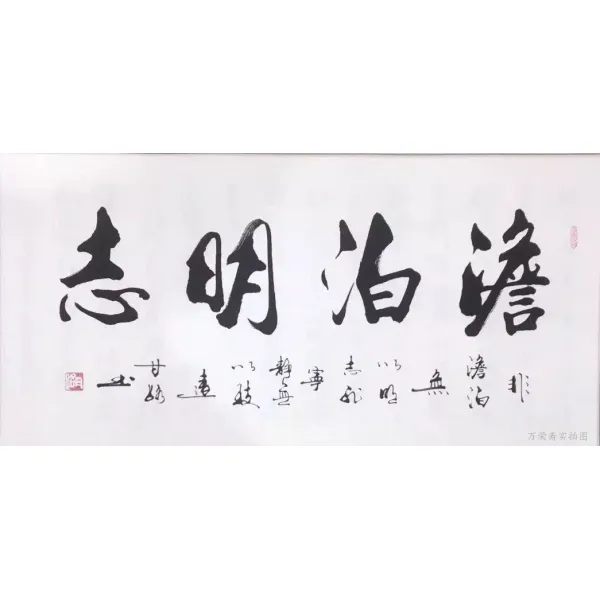 澹泊明志
非澹泊無以明志非寧靜無以致遠
甘
书
万荣斋实拍图